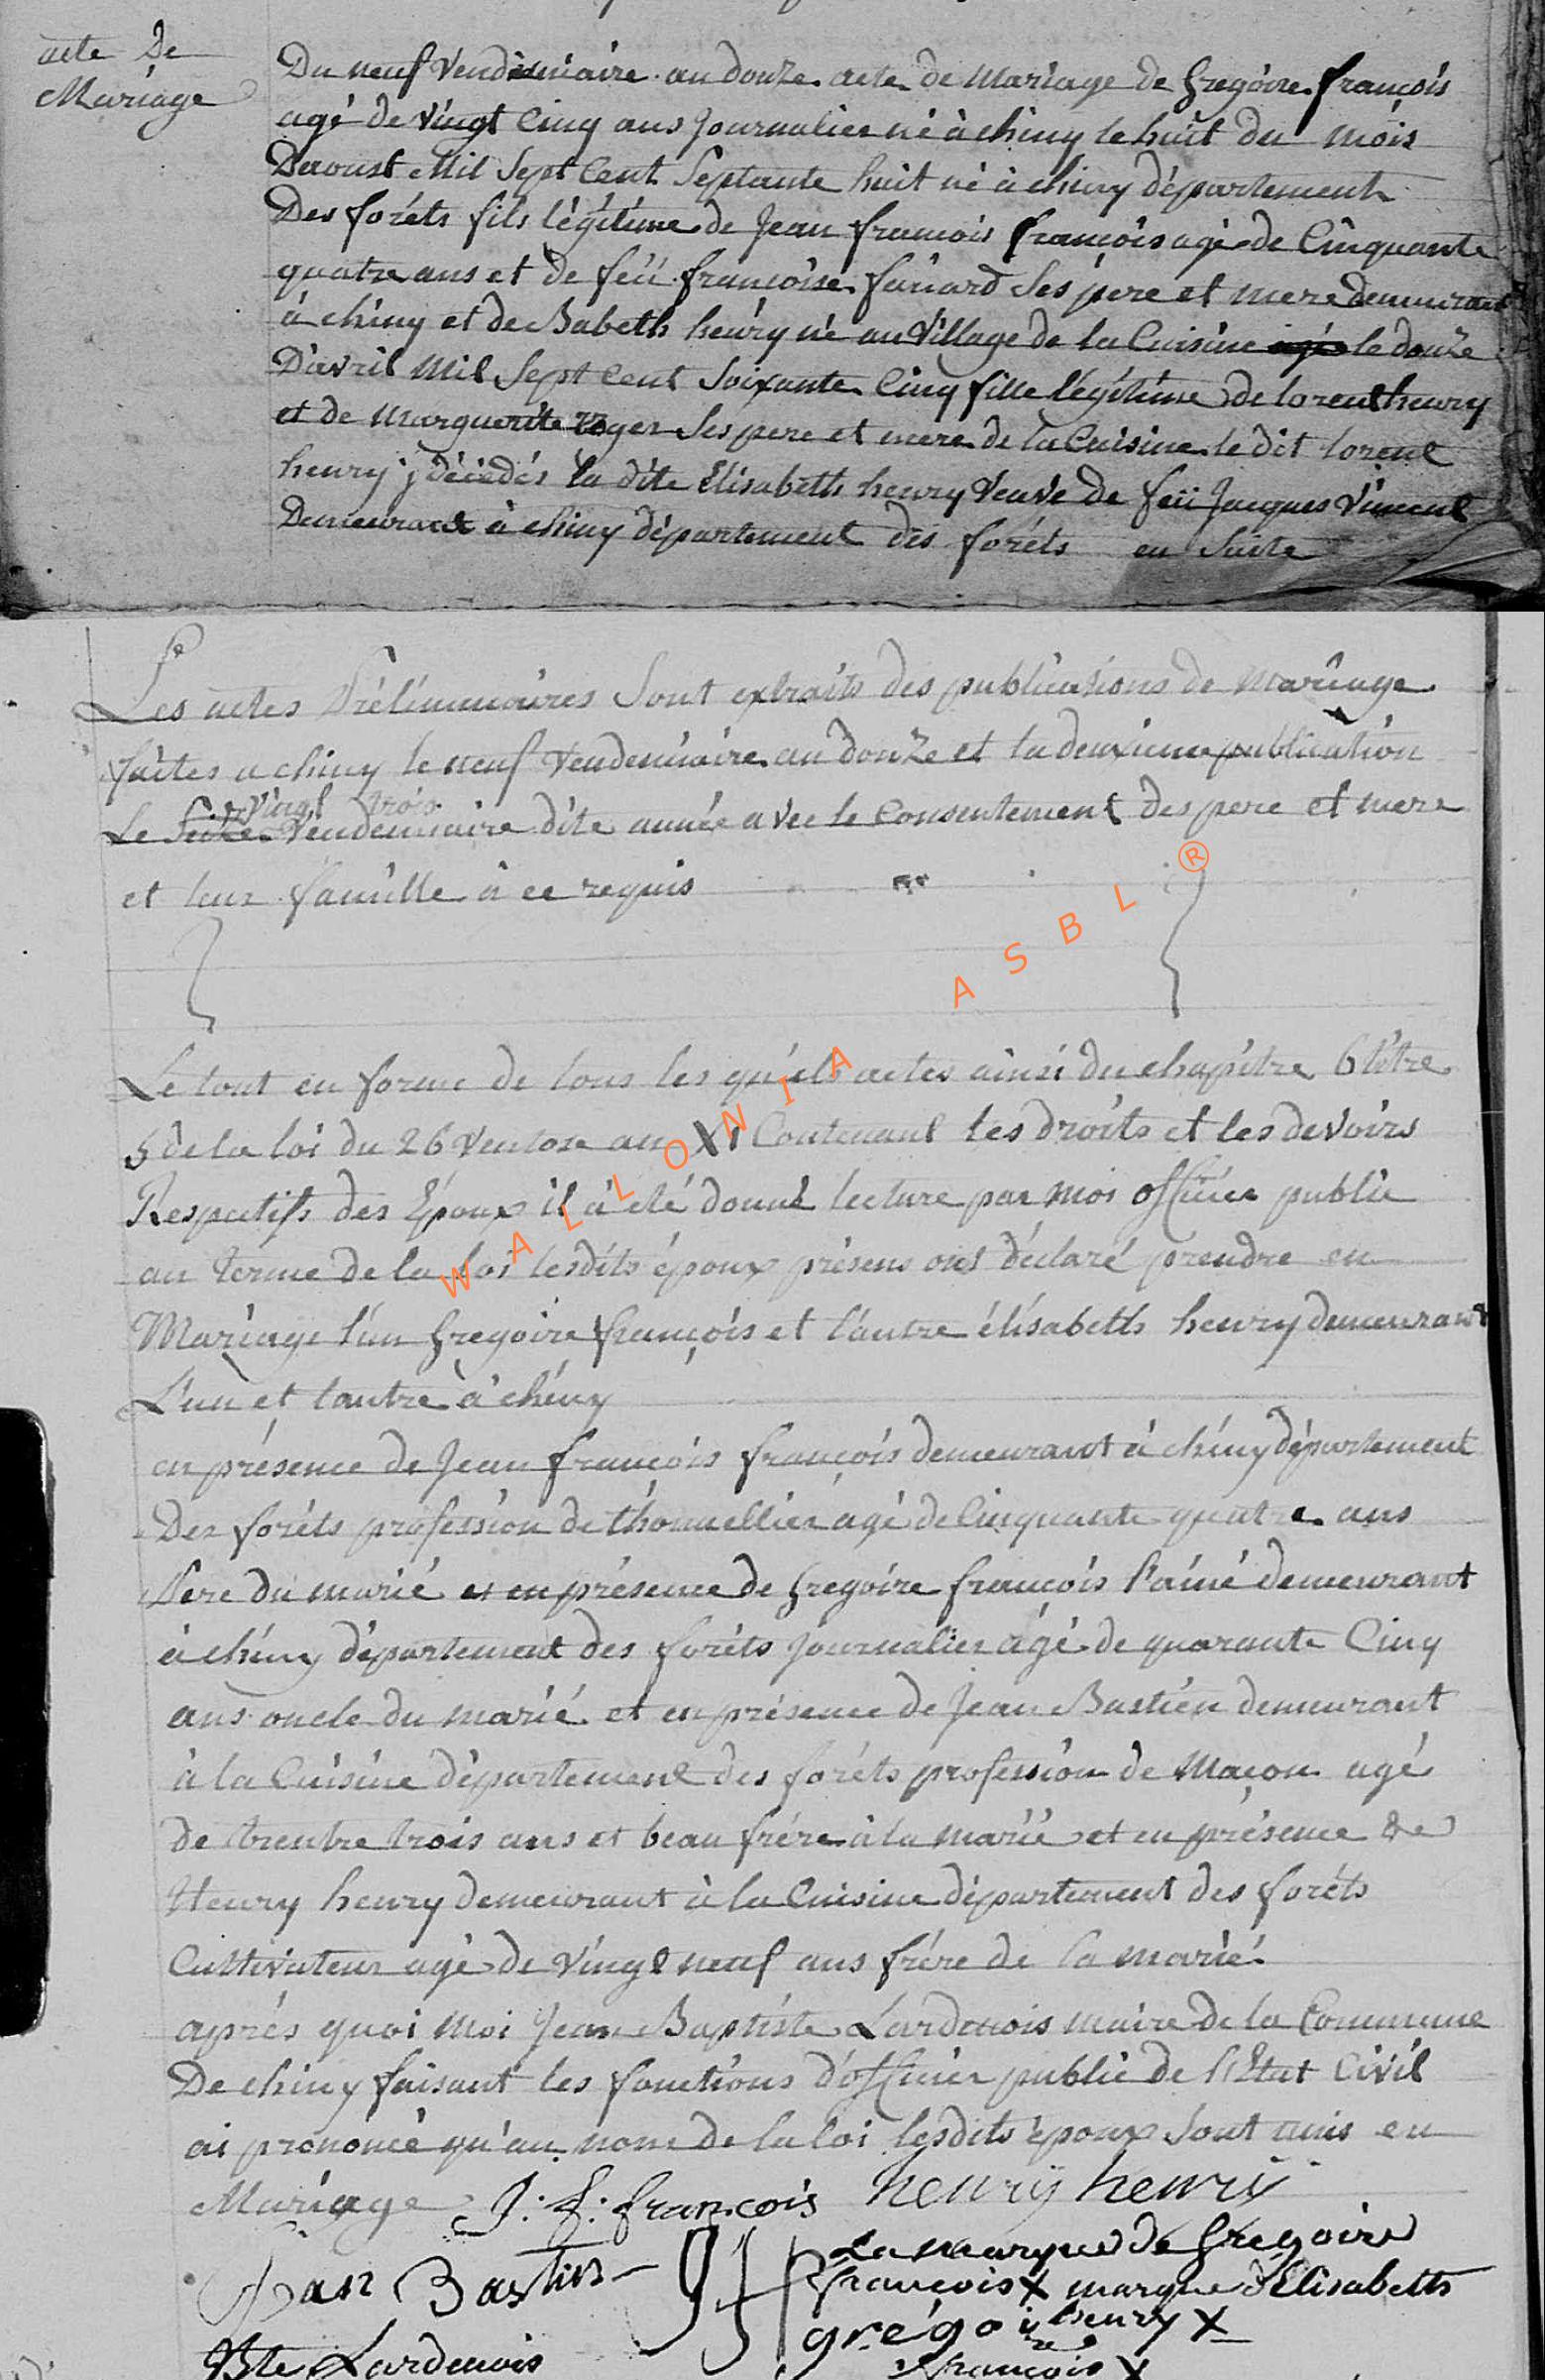 acte De
Mariage
Du neuf Vendéniaire an douze acte de Mariage de Gregoire françois
agé de vingt Cinq ans Journalier né à chiny le huit du mois
Daoust Mil Sept Cent Septante huit né à chiny département
Des foréts fils légitime de Jean françois françois agé de Cinquante
quatre ans et de feüe françoise fariard Ses pere et mere demeurant
à chiny et de Babeth henry né au Village de la Cuisine agé le douze
D'avril Mil Sept Cent Soixante Cinq fille légitime de lorent henry
et de Marguerite roger Ses pere et mere de la Cuisine le dit lorent
henry décédés la dite Elisabeth henry Veuve de feü Jacques Vincent
Demeurant à chiny département des foréts en Suite
Les actes Préliminaires Sont extraits des publications de Mariage
faites a chiny le neuf Vendeniaire an douze et la deuxieme publication
vingt trois
Le Seize Vendeniaire dite année avec le Consentement des pere et mere
et leur famille à ce requis
Le tout en forme de tous les quels actes ainsi du chapitre 6 titre
5 de la loi du 26 Ventose an XI Contenant les droits et les devoirs
Respectifs des Epoux il à été donné lecture par moi officier public
au terme de la loi lesdits époux présens ont déclaré prendre en
Mariage l'un Gregoire françois et l'autre élisabeth henry demeurant
L'un et lautre à chiny
en présence de Jean françois françois demeurant à chiny département
Des foréts profession de thonnellier agé de Cinquante quatre ans
Pere du marié et en présence de Gregoire françois l'ainé demeurant
à chiny département des foréts Journalier agé de quarante Cinq
ans oncle du marié et en présence de Jean Bastien demeurant
à la Cuisine département des foréts profession de Maçon agé
de trentre trois ans et beau frére à la mariée et en présence de
Henry henry demeurant à la Cuisine département des foréts
Cultivateur agé de Vingt neuf ans frére de la marié
aprés quoi Moi Jean Baptiste Lardenois maire de la Commune
De chiny faisant les fonctions d'officier public de l'Etat Civil
ai prononcé qu'au nom de la loi lesdits époux Sont unis en
Mariage J: f: françois henry henry
La marque de Gregoire
Jean Bastien
francois X marque d'Elisabeth
henry X
grégoire
françois X
JBte Lardenois
WALLONIA ASBL ®